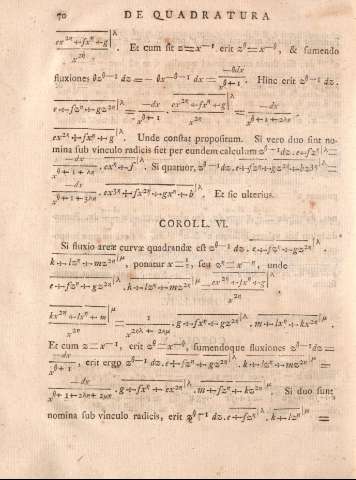 70 DE QUADRATURA
ex²ⁿ+fxⁿ+g|^λ / x²ⁿ. Et cum sit z=x⁻¹ erit z^θ=x^−θ, & sumendo
fluxiones θz^θ−1 dz=−θx^−θ−1 dx= −θdx / x^θ+1. Hinc erit z^θ−1 dz.
e+fzⁿ+gz²ⁿ|^λ = −dx / x^θ+1 . ex²ⁿ+fxⁿ+g|^λ / x²ⁿ = −dx / x^θ+1+2λn .
ex²ⁿ+fxⁿ+g|^λ. Unde constat propositum. Si vero duo sint no-
mina sub vinculo radicis fiet per eundem calculum z^θ−1 dz.e+fzⁿ|^λ=
−dx / x^θ+1+λn . exⁿ+f|^λ. Si quatuor, z^θ−1 dz.e+fzⁿ+gz²ⁿ+bz³ⁿ|^λ=
−dx / x^θ+1+3λn . ex³ⁿ+fx²ⁿ+gxⁿ+b|^λ. Et sic ulterius.
COROLL. VI.
Si fluxio areæ curvæ quadrandæ est z^θ−1 dz. e+fzⁿ+gz²ⁿ|^λ.
k+lzⁿ+mz²ⁿ|^μ, ponatur x=1/z, seu zⁿ=x⁻ⁿ, unde
e+fzⁿ+gz²ⁿ|^λ . k+lzⁿ+mz²ⁿ|^μ = ex²ⁿ+fxⁿ+g|^λ / x²ⁿ
kx²ⁿ+lxⁿ+m|^μ / x²ⁿ = 1 / x^2nλ+2λμ . g+fxⁿ+gx²ⁿ|^λ. m+lxⁿ+kx²ⁿ|^μ.
Et cum z=x⁻¹, erit z^θ=x^−θ, sumendoque fluxiones z^θ−1 dz=
−dx / x^θ+1, erit ergo z^θ−1 dz.e+fzⁿ+gz²ⁿ|^λ. k+lzⁿ+mz²ⁿ|^μ =
−dx / x^θ+1+2λn+2μn . g+fxⁿ+ex²ⁿ|^λ. m+fzⁿ+kz²ⁿ|^μ. Si duo sunt
nomina sub vinculo radicis, erit z^θ−1 dz.e+fzⁿ|^λ. k+lzⁿ|^μ =